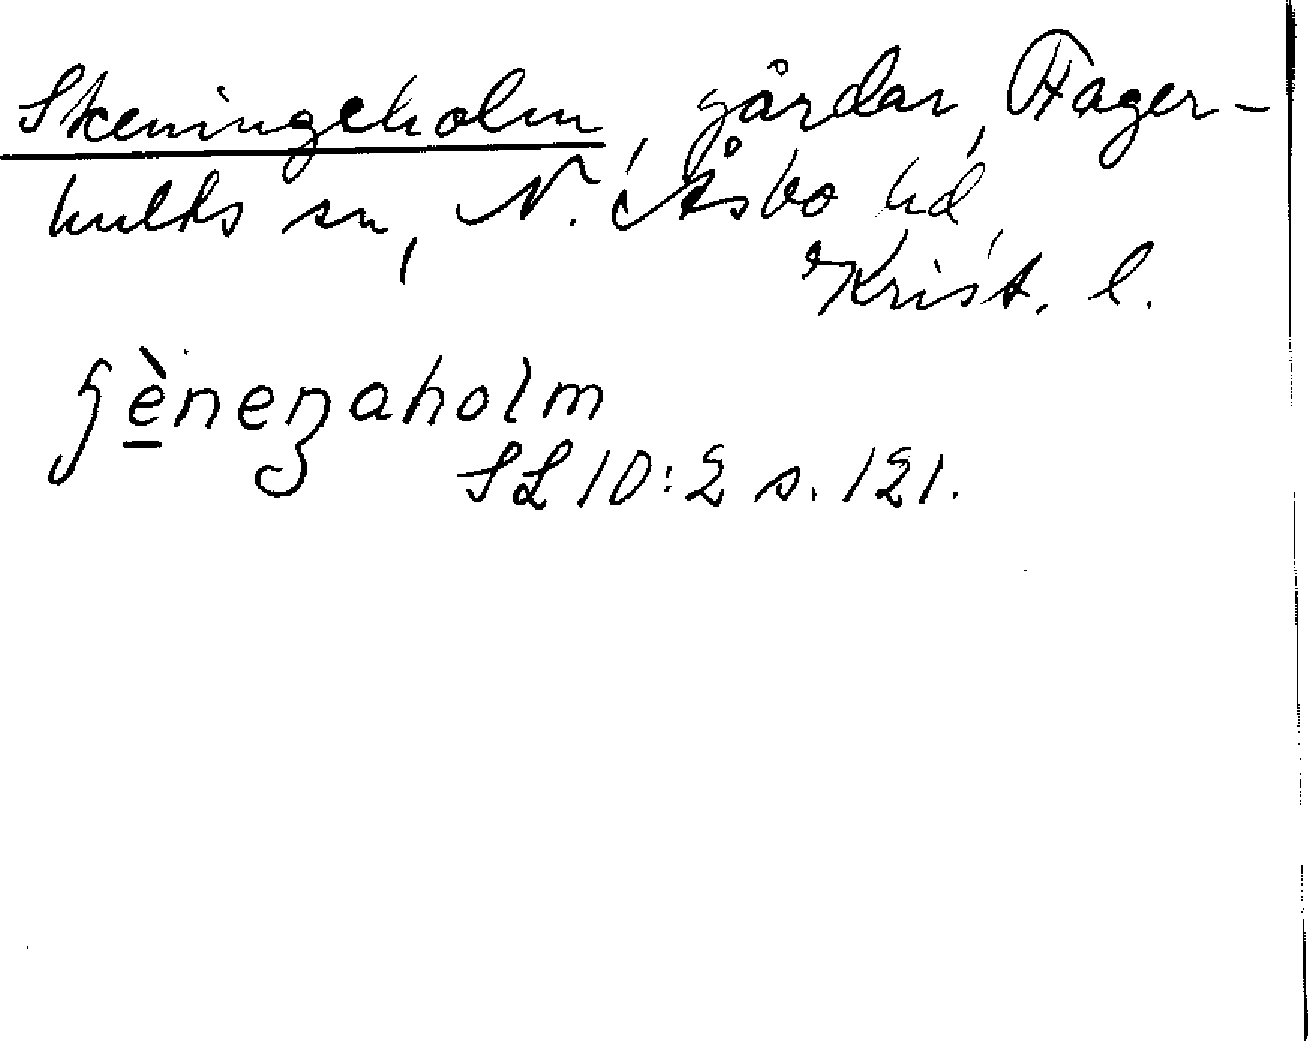 Skeningeholm, gårdar, Fager-
hults sn, N. Åsbo hd,
Krist. l.
ʃèneŋaholm
SL 10:2 s. 121.